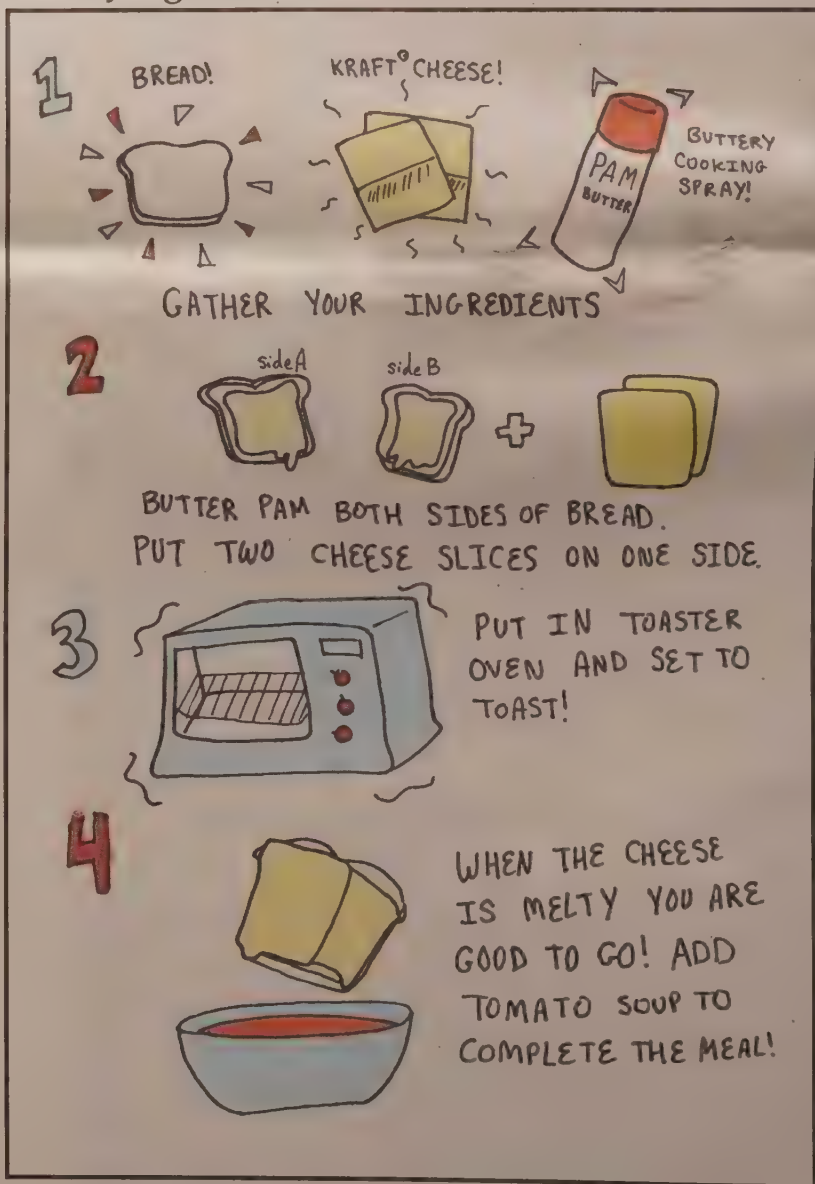 1
BREAD!
KRAFT® CHEESE!
PAM
BUTTER
BUTTERY
COOKING
SPRAY!
GATHER YOUR INGREDIENTS
2
side A
side B
+
BUTTER PAM BOTH SIDES OF BREAD.
PUT TWO CHEESE SLICES ON ONE SIDE.
3
PUT IN TOASTER
OVEN AND SET TO
TOAST!
4
WHEN THE CHEESE
IS MELTY YOU ARE
GOOD TO GO! ADD
TOMATO SOUP TO
COMPLETE THE MEAL!